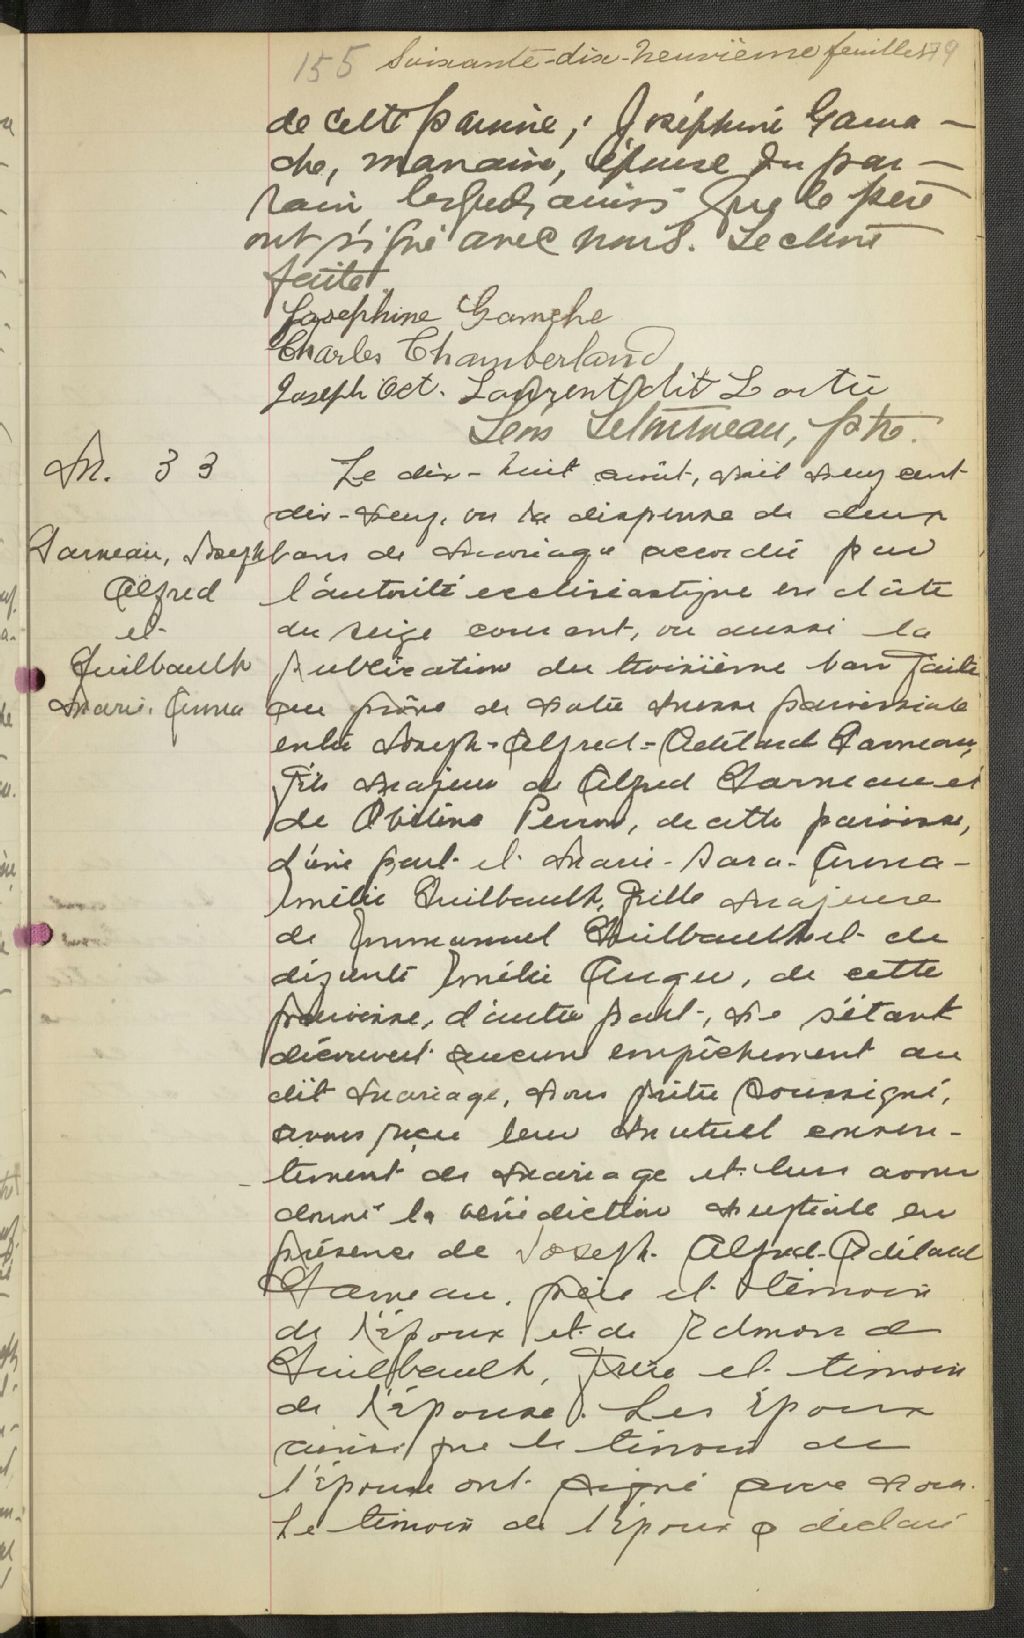 155 Soixante-dix-neuvième feuillet 79
de cette paroisse; Joséphine Gama-
che, marraine, épouse du par-
rain, lesquels, ainsi que le père
ont signé avec nous. Lecture
faite.
Josephine Gamache
Charles Chamberland
Joseph Oct. Laurent dit Lortie
Léon Létourneau, ptre.
M. 33
Le dix-huit août, mil neuf cent
dix-neuf, vu la dispense de deux
Garneau, Joseph
Alfred
et
Guilbault
Marie. Anna
bans de mariage accordée par
l'autorité ecclésiastique en date
du seize courant, vu aussi la
publication du troisième ban faite
au prône de notre messe paroissiale
entre Joseph-Alfred-Adélard Garneau,
fils majeur de Alfred Garneau et
de Obéline Perron, de cette paroisse,
d'une part et Marie-Sara-Anna-
Emélie Guilbault, fille majeure
de Emmanuel Guilbault et de
défunte Emélie Auger, de cette
paroisse, d'autre part, ne s'étant
découvert aucun empêchement au
dit mariage, nous prêtre soussigné,
avons reçu leur mutuel consen-
tement de mariage et leur avons
donné la bénédiction nuptiale en
présence de Joseph. Alfred-Adélard
Garneau, père et témoin
de l'époux et de Edmond
Guilbault, frère et témoin
de l'Épouse. Les Époux
ainsi que le témoin de
l'Épouse ont signé avec nous.
Le témoin de l'Époux a déclaré